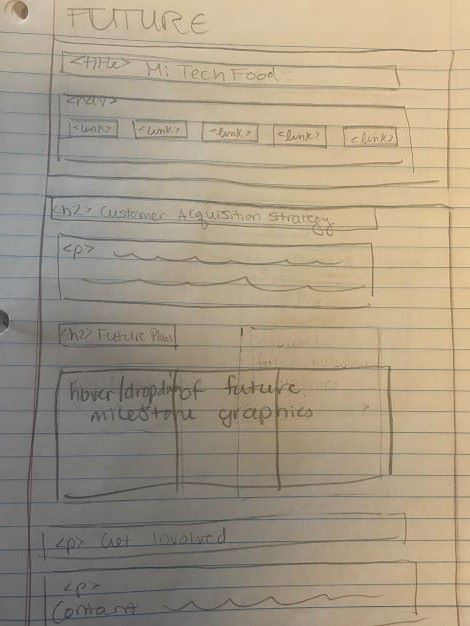 FUTURE
<title> Mi Tech Food
<nav>
<link> <link> <link> <link> <link>
<h2> Customer Acquisition Strategy
<p>
<h2> Future Plans
hover/dropdown of future
milestone graphics
<p> Get Involved
<p>